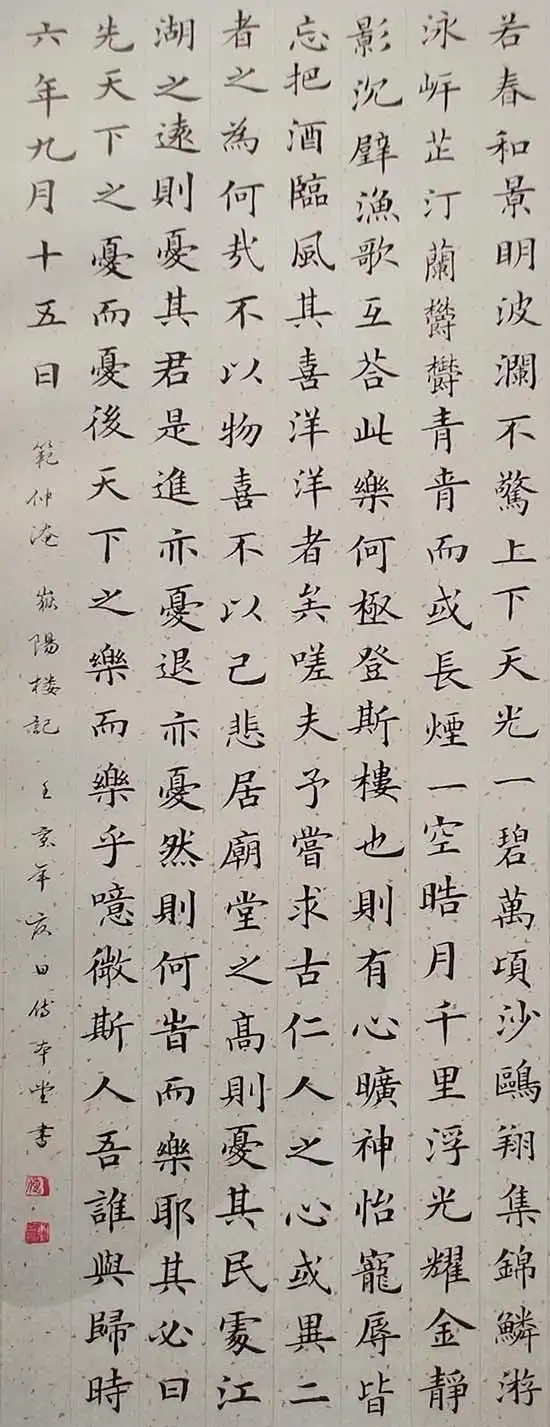 若春和景明波瀾不驚上下天光一碧萬頃沙鷗翔集錦鱗游
泳岸芷汀蘭欝欝青青而或長煙一空晧月千里浮光耀金靜
影沉璧漁歌互荅此樂何極登斯樓也則有心曠神怡寵辱皆
忘把酒臨風其喜洋洋者矣嗟夫予嘗求古仁人之心或異二
者之為何哉不以物喜不以己悲居廟堂之髙則憂其民處江
湖之遠則憂其君是進亦憂退亦憂然則何旹而樂耶其必曰
先天下之憂而憂後天下之樂而樂乎噫微斯人吾誰與歸時
六年九月十五日
範仲淹 嶽陽樓記 年 日 書